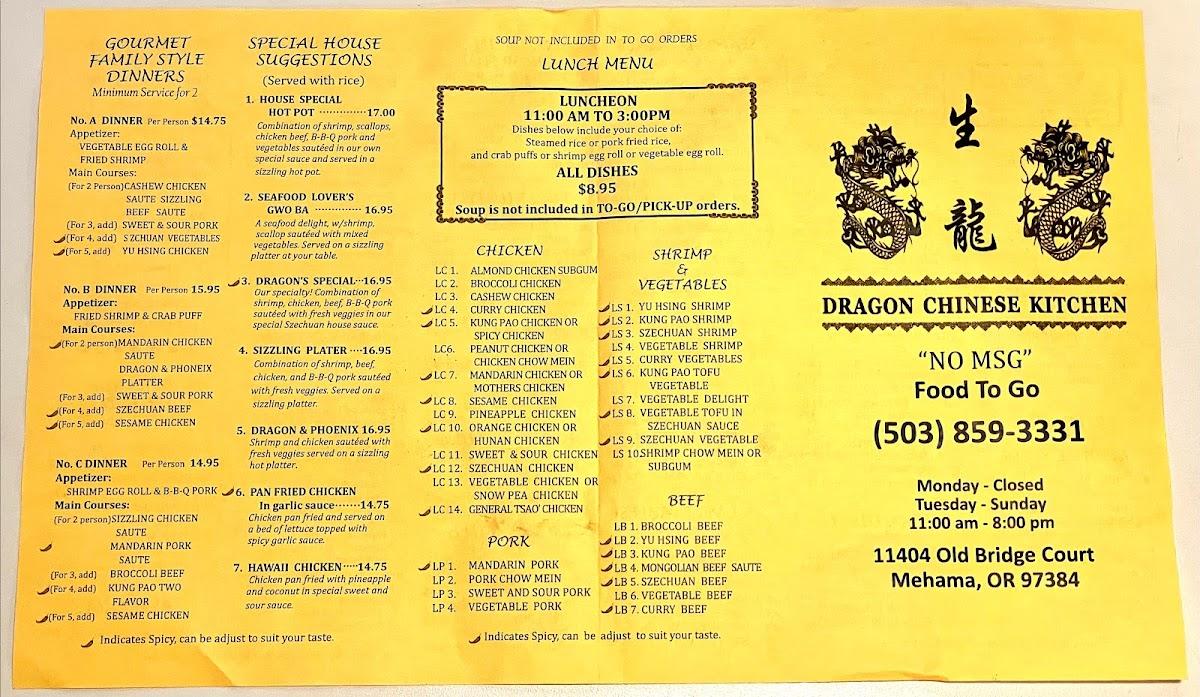 GOURMET
FAMILY STYLE
DINNERS
Minimum Service for 2
No. A DINNER Per Person $14.75
Appetizer:
VEGETABLE EGG ROLL &
FRIED SHRIMP
Main Courses:
(For 2 Person)CASHEW CHICKEN
SAUTE SIZZLING
BEEF SAUTE
(For 3, add) SWEET & SOUR PORK
(For 4, add) SZCHUAN VEGETABLES
(For 5, add) YU HSING CHICKEN
No. B DINNER Per Person 15.95
Appetizer:
FRIED SHRIMP & CRAB PUFF
Main Courses:
(For 2 person)MANDARIN CHICKEN
SAUTE
DRAGON & PHONEIX
PLATTER
(For 3, add) SWEET & SOUR PORK
(For 4, add) SZECHUAN BEEF
(For 5, add) SESAME CHICKEN
No. C DINNER Per Person 14.95
Appetizer:
SHRIMP EGG ROLL & B-B-Q PORK
Main Courses:
(For 2 person)SIZZLING CHICKEN
SAUTE
MANDARIN PORK
SAUTE
(For 3, add) BROCCOLI BEEF
(For 4, add) KUNG PAO TWO
FLAVOR
(For 5, add) SESAME CHICKEN
Indicates Spicy, can be adjust to suit your taste.
SPECIAL HOUSE
SUGGESTIONS
(Served with rice)
1. HOUSE SPECIAL
HOT POT ··············17.00
Combination of shrimp, scallops,
chicken beef, B-B-Q pork and
vegetables sautéed in our own
special sauce and served in a
sizzling hot pot.
2. SEAFOOD LOVER'S
GWO BA ·············· 16.95
A seafood delight, w/shrimp,
scallop sautéed with mixed
vegetables. Served on a sizzling
platter at your table.
3. DRAGON'S SPECIAL···16.95
Our specialty! Combination of
shrimp, chicken, beef, B-B-Q pork
sautéed with fresh veggies in our
special Szechuan house sauce.
4. SIZZLING PLATER ····16.95
Combination of shrimp, beef,
chicken, and B-B-Q pork sautéed
with fresh veggies. Served on a
sizzling platter.
5. DRAGON & PHOENIX 16.95
Shrimp and chicken sautéed with
fresh veggies served on a sizzling
hot platter.
6. PAN FRIED CHICKEN
In garlic sauce·······14.75
Chicken pan fried and served on
a bed of lettuce topped with
spicy garlic sauce.
7. HAWAII CHICKEN·····14.75
Chicken pan fried with pineapple
and coconut in special sweet and
sour sauce.
SOUP NOT INCLUDED IN TO GO ORDERS
LUNCH MENU
LUNCHEON
11:00 AM TO 3:00PM
Dishes below include your choice of:
Steamed rice or pork fried rice,
and crab puffs or shrimp egg roll or vegetable egg roll.
ALL DISHES
$8.95
Soup is not included in TO-GO/PICK-UP orders.
CHICKEN
LC 1. ALMOND CHICKEN SUBGUM
LC 2. BROCCOLI CHICKEN
LC 3. CASHEW CHICKEN
LC 4. CURRY CHICKEN
LC 5. KUNG PAO CHICKEN OR
SPICY CHICKEN
LC6. PEANUT CHICKEN OR
CHICKEN CHOW MEIN
LC 7. MANDARIN CHICKEN OR
MOTHERS CHICKEN
LC 8. SESAME CHICKEN
LC 9. PINEAPPLE CHICKEN
LC 10. ORANGE CHICKEN OR
HUNAN CHICKEN
LC 11. SWEET & SOUR CHICKEN
LC 12. SZECHUAN CHICKEN
LC 13. VEGETABLE CHICKEN OR
SNOW PEA CHICKEN
LC 14. GENERAL TSAO' CHICKEN
PORK
LP 1. MANDARIN PORK
LP 2. PORK CHOW MEIN
LP 3. SWEET AND SOUR PORK
LP 4. VEGETABLE PORK
SHRIMP
&
VEGETABLES
LS 1. YU HSING SHRIMP
LS 2. KUNG PAO SHRIMP
LS 3. SZECHUAN SHRIMP
LS 4. VEGETABLE SHRIMP
LS 5. CURRY VEGETABLES
LS 6. KUNG PAO TOFU
VEGETABLE
LS 7. VEGETABLE DELIGHT
LS 8. VEGETABLE TOFU IN
SZECHUAN SAUCE
LS 9. SZECHUAN VEGETABLE
LS 10SHRIMP CHOW MEIN OR
SUBGUM
BEEF
LB 1. BROCCOLI BEEF
LB 2. YU HSING BEEF
LB 3. KUNG PAO BEEF
LB 4. MONGOLIAN BEEF SAUTE
LB 5. SZECHUAN BEEF
LB 6. VEGETABLE BEEF
LB 7. CURRY BEEF
Indicates Spicy, can be adjust to suit your taste.
生
龍
DRAGON CHINESE KITCHEN
“NO MSG”
Food To Go
(503) 859-3331
Monday - Closed
Tuesday - Sunday
11:00 am - 8:00 pm
11404 Old Bridge Court
Mehama, OR 97384